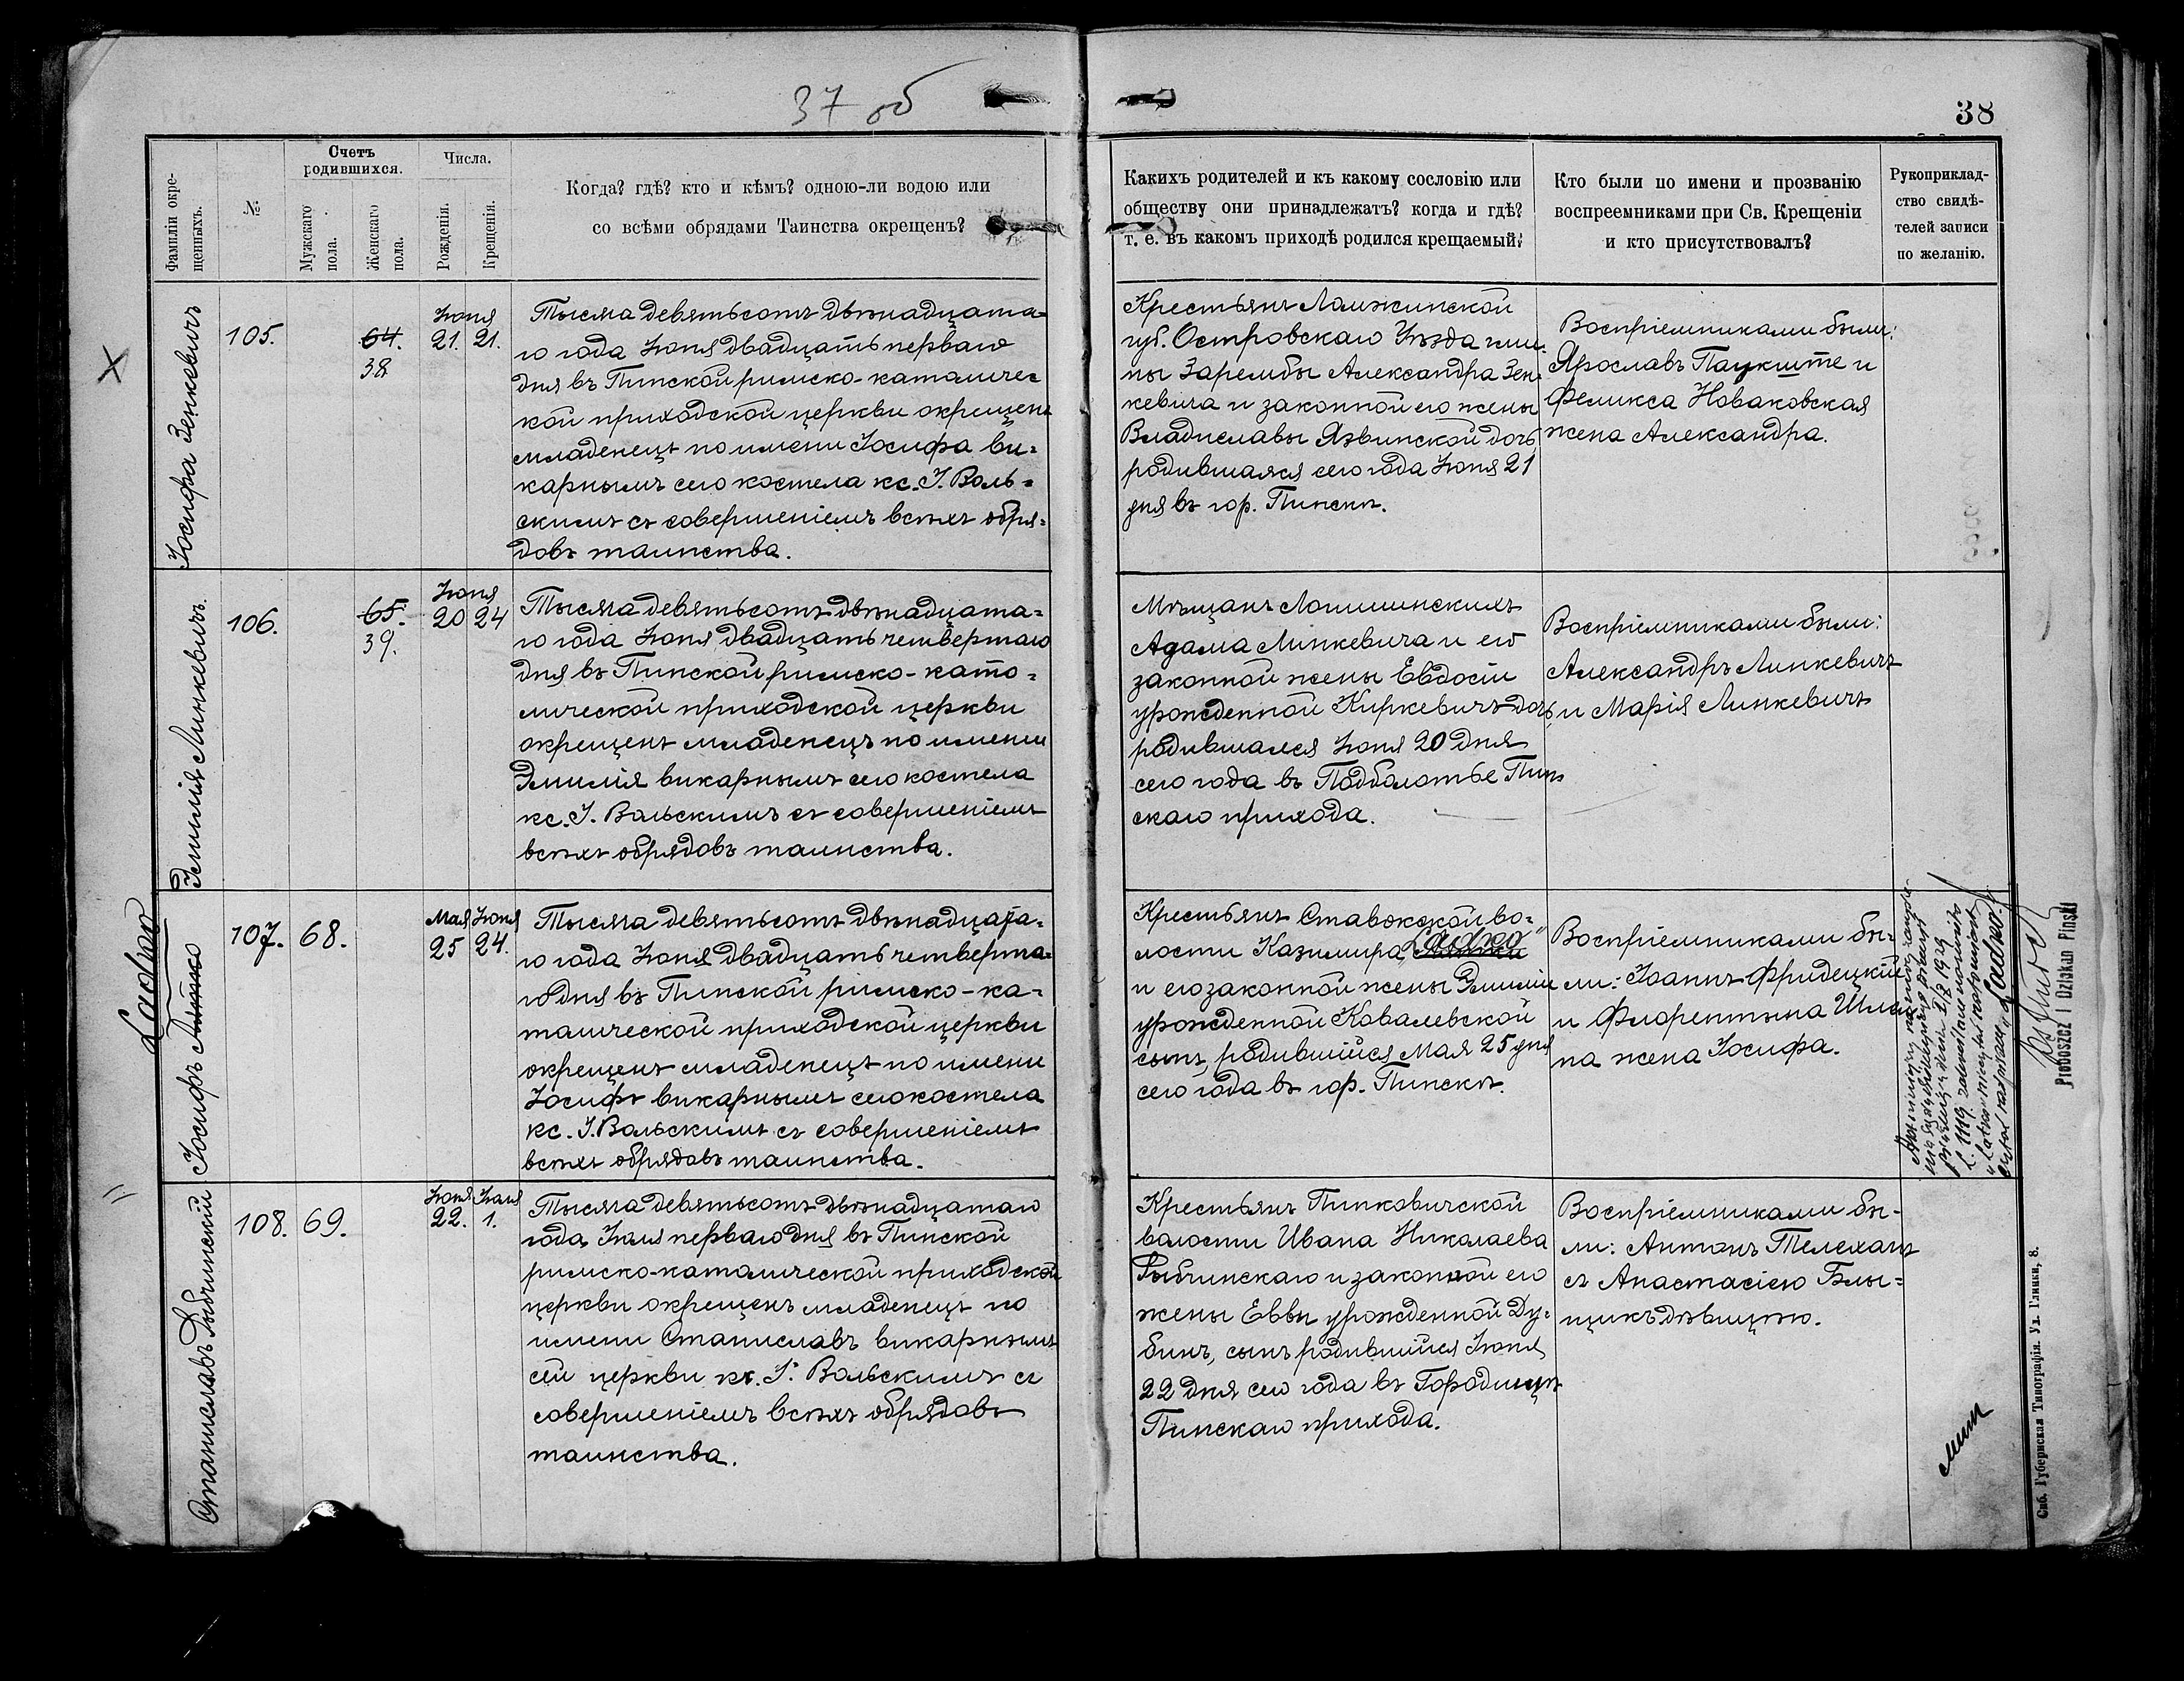 37 об
38
Фамиліи окре-
щенныхъ.
№
Счетъ
родившихся.
Мужскаго
пола.
Женскаго
пола.
Числа.
Рожденія.
Крещенія.
Когда? гдѣ? кто и кѣмъ? одною-ли водою или
со всѣми обрядами Таинства окрещенъ?
Какихъ родителей и къ какому сословію или
обществу они принадлежатъ? когда и гдѣ?
т. е. въ какомъ приходѣ родился крещаемый?
Кто были по имени и прозванію
воспреемниками при Св. Крещеніи
и кто присутствовалъ?
Рукоприклад-
ство свидѣ-
телей записи
по желанію.
Іосифа Зенкевичъ
105.
64.
38.
Іюня
21. 21.
Тысяча девятьсотъ двѣнадцата-
го года Іюня двадцать перваго
дня въ Пинской римско-католичес
кой приходской церкви окрещенъ
младенецъ по имени Іосифа ви-
карнымъ сего костела кс. І. Воль-
скимъ съ совершеніемъ всѣхъ обря-
довъ таинства.
Крестьянъ Ломжинской
губ. Островскаго Уѣзда гми-
ны Зарембы Александра Зен-
кевича и законной его жены
Владиславы Язвинской дочь,
родившаяся сего года Іюня 21
дня въ гор. Пинскѣ.
Воспріемниками были:
Ярославъ Паукште и
Феликса Новаковская
жена Александра.
Эмилія Линкевичъ.
106.
65.
39.
Іюня
20 24
Тысяча девятьсотъ двѣнадцата-
го года Іюня двадцать четвертаго
дня въ Пинской римско-като-
лической приходской церкви
окрещенъ младенецъ по имени
Эмилія викарнымъ сего костела
кс. І. Вольскимъ съ совершеніемъ
всѣхъ обрядовъ таинства.
Мѣщанъ Логишинскихъ
Адама Линкевича и его
законной жены Евдосіи
урожденной Киркевичъ дочь,
родившаяся Іюня 20 дня
сего года въ Подболотье Пин-
скаго прихода.
Воспріемниками были:
Александръ Линкевичъ
и Марія Линкевичъ
Ladko
Іосифъ
107.
68.
Мая Іюня
25 24.
Тысяча девятьсотъ двѣнадцата-
го года Іюня двадцать четверта-
го дня въ Пинской римско-ка-
толической приходской церкви
окрещенъ младенецъ по имени
Іосифъ викарнымъ сего костела
кс. І. Вольскимъ съ совершеніемъ
всѣхъ обрядовъ таинства.
Крестьянъ Ставокской во-
лости Казимира "Ladko"
и его законной жены Эмиліи
урожденной Ковалевской
сынъ, родившійся Мая 25 дня
сего года въ гор. Пинскѣ.
Воспріемниками бы-
ли: Іоаннъ Фридецкій
и Флорентына
на жена Іосифа.
"Ladko"
Proboszcz i Dziekan Piński
Станиславъ Рыбчинскій
108.
69.
Іюня Іюля
22. 1.
Тысяча девятьсотъ двѣнадцатаго
года, Іюля перваго дня въ Пинской
римско-католической приходской
церкви окрещенъ младенецъ по
имени Станиславъ викарнымъ
сей церкви кс. І. Вольскимъ съ
совершеніемъ всѣхъ обрядовъ
таинства.
Крестьянъ Пинковичской
волости Ивана Николаева
Рыбчинскаго и законной его
жены Еввы урожденной Ду-
бинъ, сынъ родившійся Іюня
22 дня сего года въ Городищѣ
Пинскаго прихода.
Воспріемниками бы-
ли: Антонъ Телеханъ
съ Анастасіею Блы-
щикъ дѣвицею.
Спб. Губернская Типографія. Ул. Глинки, 8.